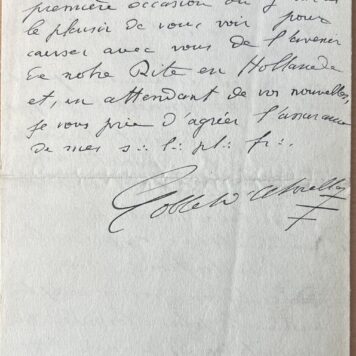 première occasion
le plaisir de vous voir pour
causer avec vous de l'avenir
de notre Rite en Hollande
et, en attendant de vos nouvelles,
je vous prie d'agréer l'assurance
de mes s∴ l∴ pl∴ fr∴
Goblet d'Alviella